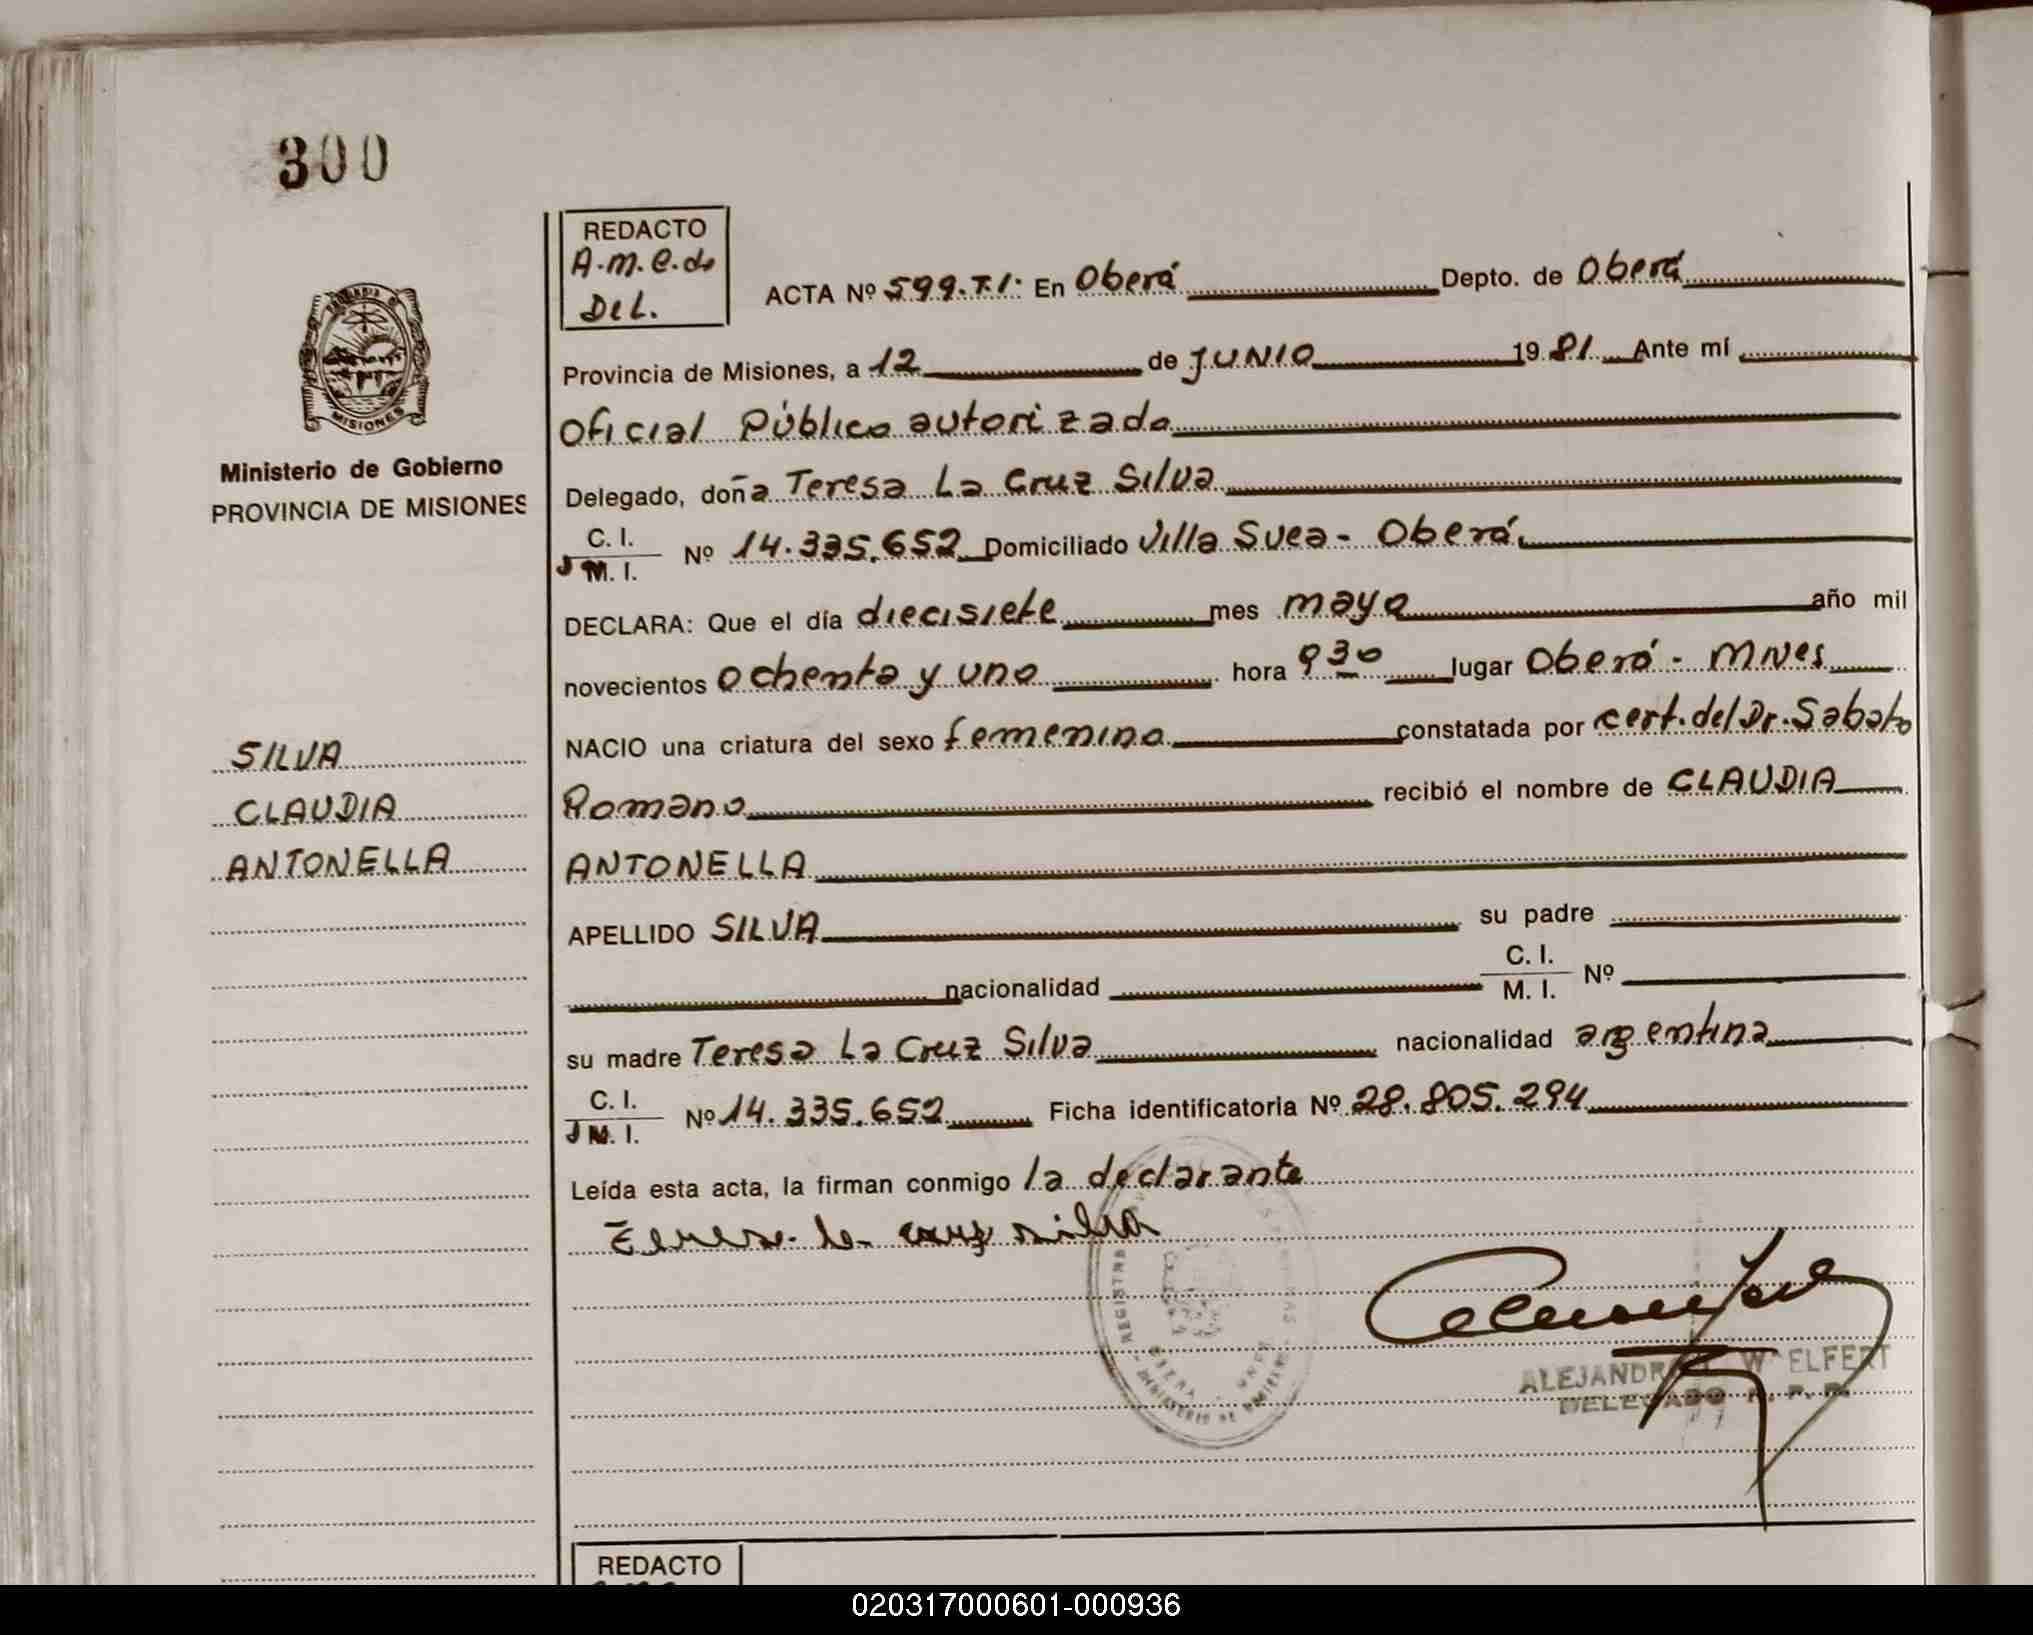 300
REDACTO
A.M.C.do
DEL.
ACTA Nº 599.T.I. En Oberá Depto. de Oberá
Provincia de Misiones, a 12 de JUNIO 1981 Ante mí
Oficial Público autorizado
Delegado, doña Teresa La Cruz Silva
C. I.
M. I. Nº 14.335.652 Domiciliado Villa Svea - Oberá
DECLARA: Que el día diecisiete mes mayo año mil
novecientos ochenta y uno hora 9 30 lugar Oberá - Mnes
NACIO una criatura del sexo femenino constatada por cert. del Dr. Sabato
Romano recibió el nombre de CLAUDIA
ANTONELLA
APELLIDO SILVA su padre
nacionalidad C. I.
M. I. Nº
su madre Teresa La Cruz Silva nacionalidad argentina
C. I.
M. I. Nº 14.335.652 Ficha identificatoria Nº 28.805.294
Leída esta acta, la firman conmigo la declarante
Teresa la cruz silva
MISIONES
Ministerio de Gobierno
PROVINCIA DE MISIONES
SILVA
CLAUDIA
ANTONELLA
ALEJANDRO W ELFERT
DELEGADO R. P. P.
REDACTO
020317000601-000936